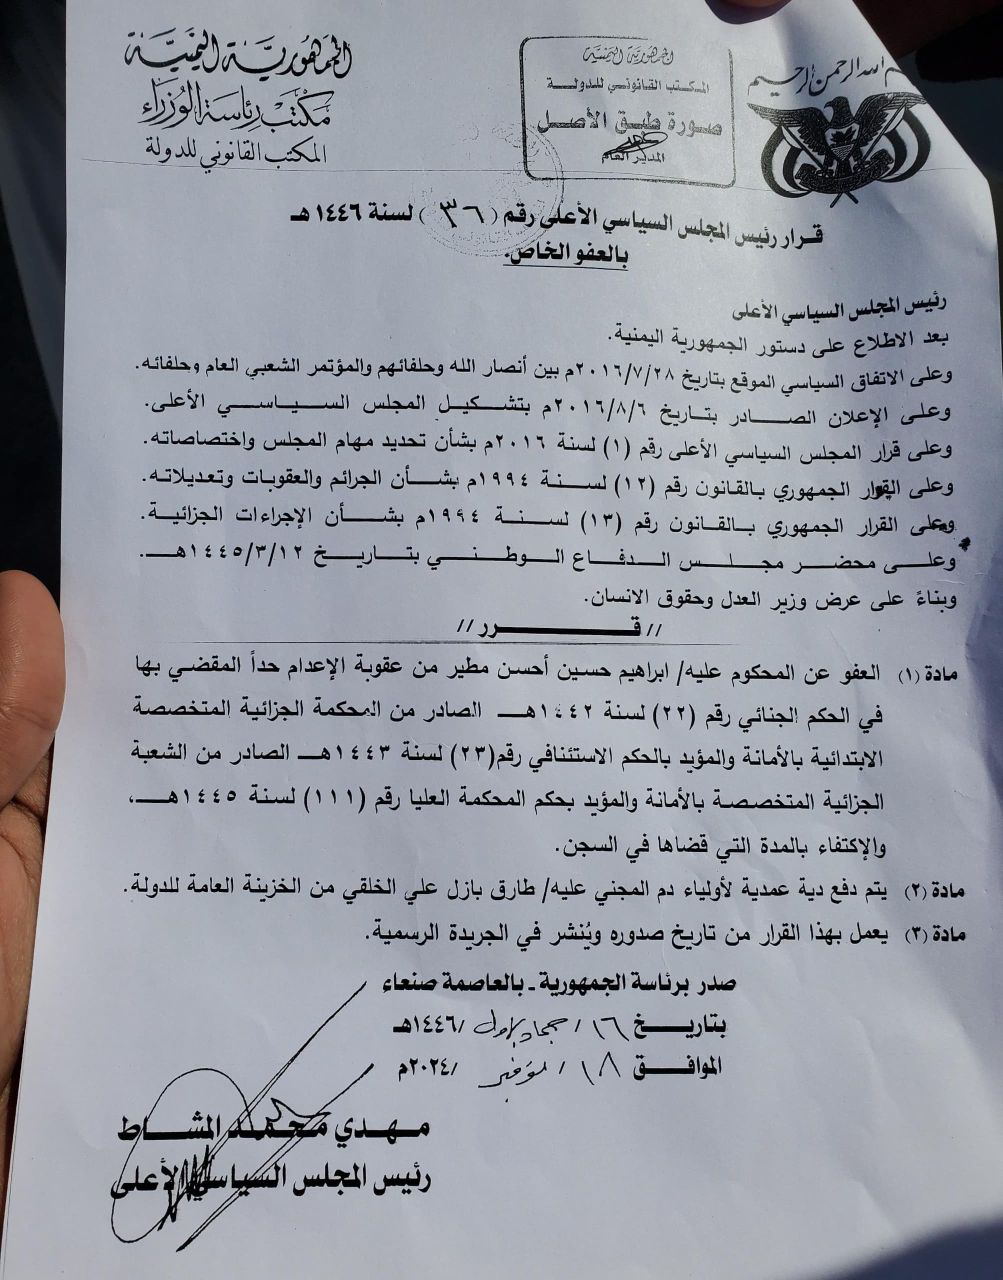 بسم الله الرحمن الرحيم
الجمهورية اليمنية
مكتب رئاسة الوزراء
المكتب القانوني للدولة
الجمهورية اليمنية
المكتب القانوني للدولة
صورة طبق الأصل
المدير العام
قرار رئيس المجلس السياسي الأعلى رقم (٣٦) لسنة ١٤٤٦هـ
بالعفو الخاص.
رئيس المجلس السياسي الأعلى
بعد الاطلاع على دستور الجمهورية اليمنية.
وعلى الاتفاق السياسي الموقع بتاريخ ٢٠١٦/٧/٢٨م بين أنصار الله وحلفائهم والمؤتمر الشعبي العام وحلفائه.
وعلى الإعلان الصادر بتاريخ ٢٠١٦/٨/٦م بتشكيل المجلس السياسي الأعلى.
وعلى قرار المجلس السياسي الأعلى رقم (١) لسنة ٢٠١٦م بشأن تحديد مهام المجلس واختصاصاته.
وعلى القرار الجمهوري بالقانون رقم (١٢) لسنة ١٩٩٤م بشأن الجرائم والعقوبات وتعديلاته.
وعلى القرار الجمهوري بالقانون رقم (١٣) لسنة ١٩٩٤م بشأن الإجراءات الجزائية.
وعلى محضر مجلس الدفاع الوطني بتاريخ ١٤٤٥/٣/١٢هـ.
وبناءً على عرض وزير العدل وحقوق الانسان.
// قـــرر //
مادة (١) العفو عن المحكوم عليه/ ابراهيم حسين أحسن مطير من عقوبة الإعدام حداً المقضي بها
في الحكم الجنائي رقم (٢٢) لسنة ١٤٤٢هـ الصادر من المحكمة الجزائية المتخصصة
الابتدائية بالأمانة والمؤيد بالحكم الاستئنافي رقم(٢٣) لسنة ١٤٤٣هـ الصادر من الشعبة
الجزائية المتخصصة بالأمانة والمؤيد بحكم المحكمة العليا رقم (١١١) لسنة ١٤٤٥هـ،
والإكتفاء بالمدة التي قضاها في السجن.
مادة (٢) يتم دفع دية عمدية لأولياء دم المجني عليه/ طارق بازل علي الخلقي من الخزينة العامة للدولة.
مادة (٣) يعمل بهذا القرار من تاريخ صدوره ويُنشر في الجريدة الرسمية.
صدر برئاسة الجمهورية - بالعاصمة صنعاء
بتاريخ ١٦/ جماد الاول /١٤٤٦هـ
الموافق ١٨/ نوفمبر /٢٠٢٤م
مهدي محمد المشاط
رئيس المجلس السياسي الأعلى